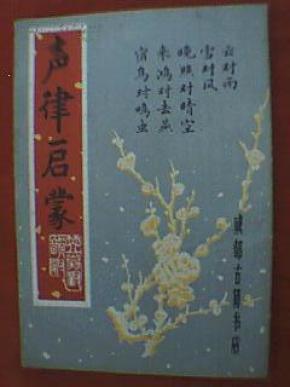 声律启蒙
云对雨
雪对风
晚照对晴空
来鸿对去燕
宿鸟对鸣虫
成都古籍书店